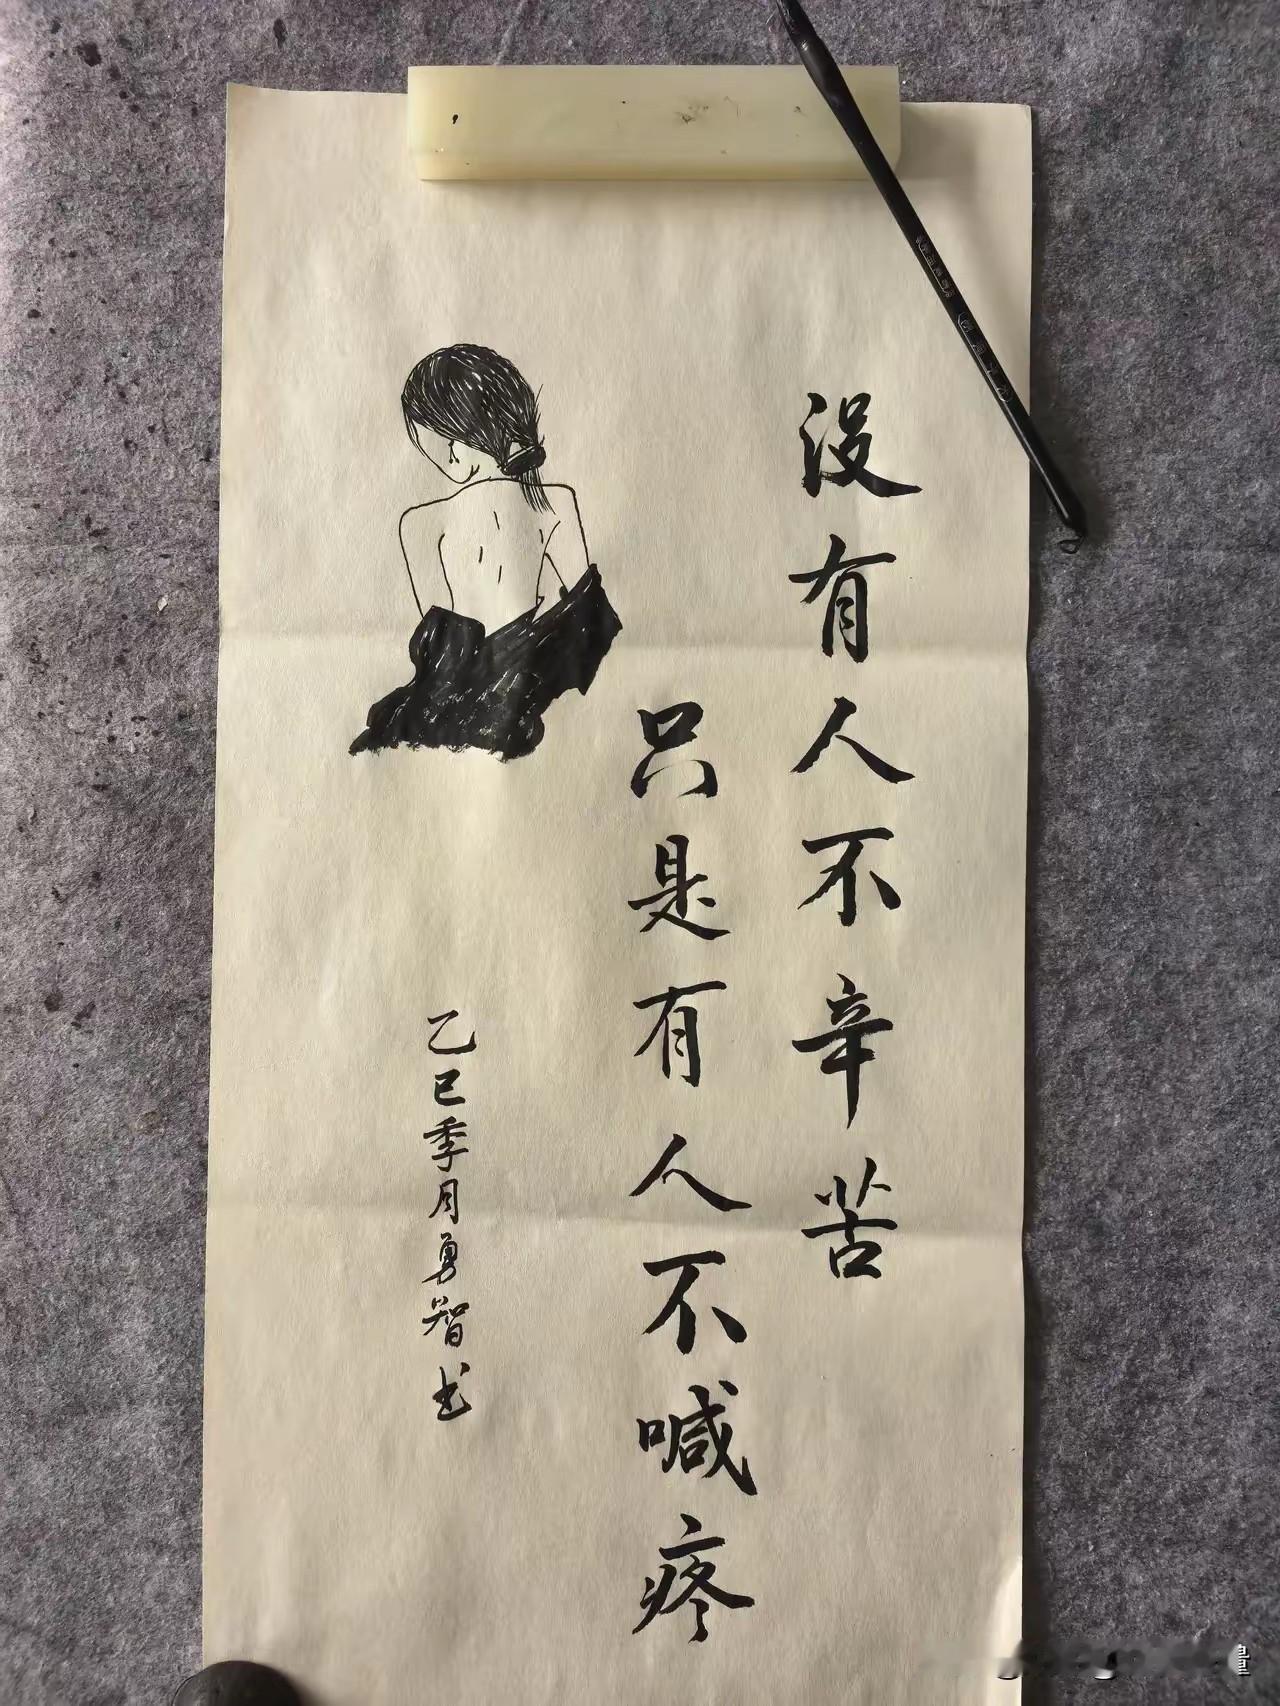 没有人不辛苦
只是有人不喊疼
乙巳季月勇智书